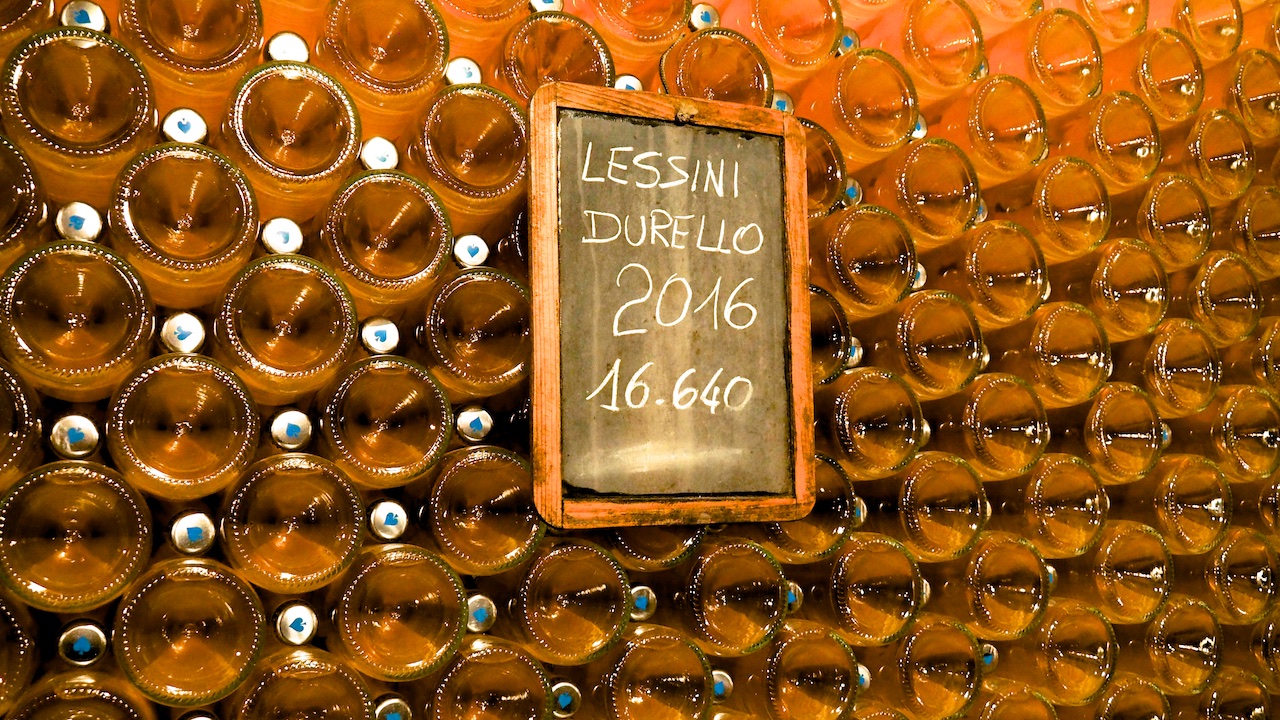 LESSINI
DURELLO
2016
16.640